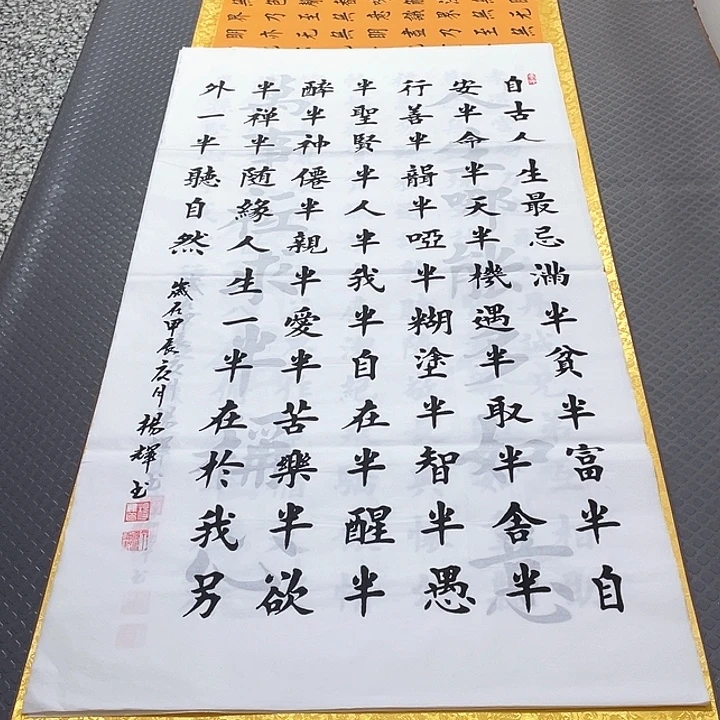 自古人生最忌滿半貧半富半自
安半命半天半機遇半取半舍半
行善半半啞半糊塗半智半愚
半聖賢半人半我半自在半醒半
醉半神僊半親半愛半苦樂半欲
半禅半随緣人生一半在於我另
外一半聽自然
歲在甲辰月楊輝书